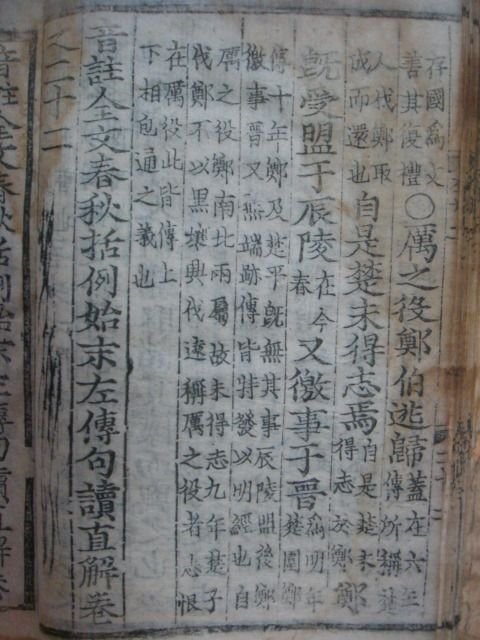 存國爲文
善其復禮
○厲之役鄭伯逃歸
蓋在六年
傳所稱楚
人伐鄭取
成而還也
自是楚未得志焉
自是楚未
得志於鄭
鄭
旣受盟于辰陵
在今
春
又徼事于晉
爲明年
楚圍鄭
傳十年鄭及楚平旣無其事辰陵盟後鄭
徼事晉又無端跡傳皆特發以明經也自
厲之役鄭南北兩屬故未得志九年楚子
伐鄭不以黑壤興伐遠稱厲之役者志恨
在厲役此皆傳上
下相包通之義也
音註全文春秋括例始末左傳句讀直解卷
之二十二